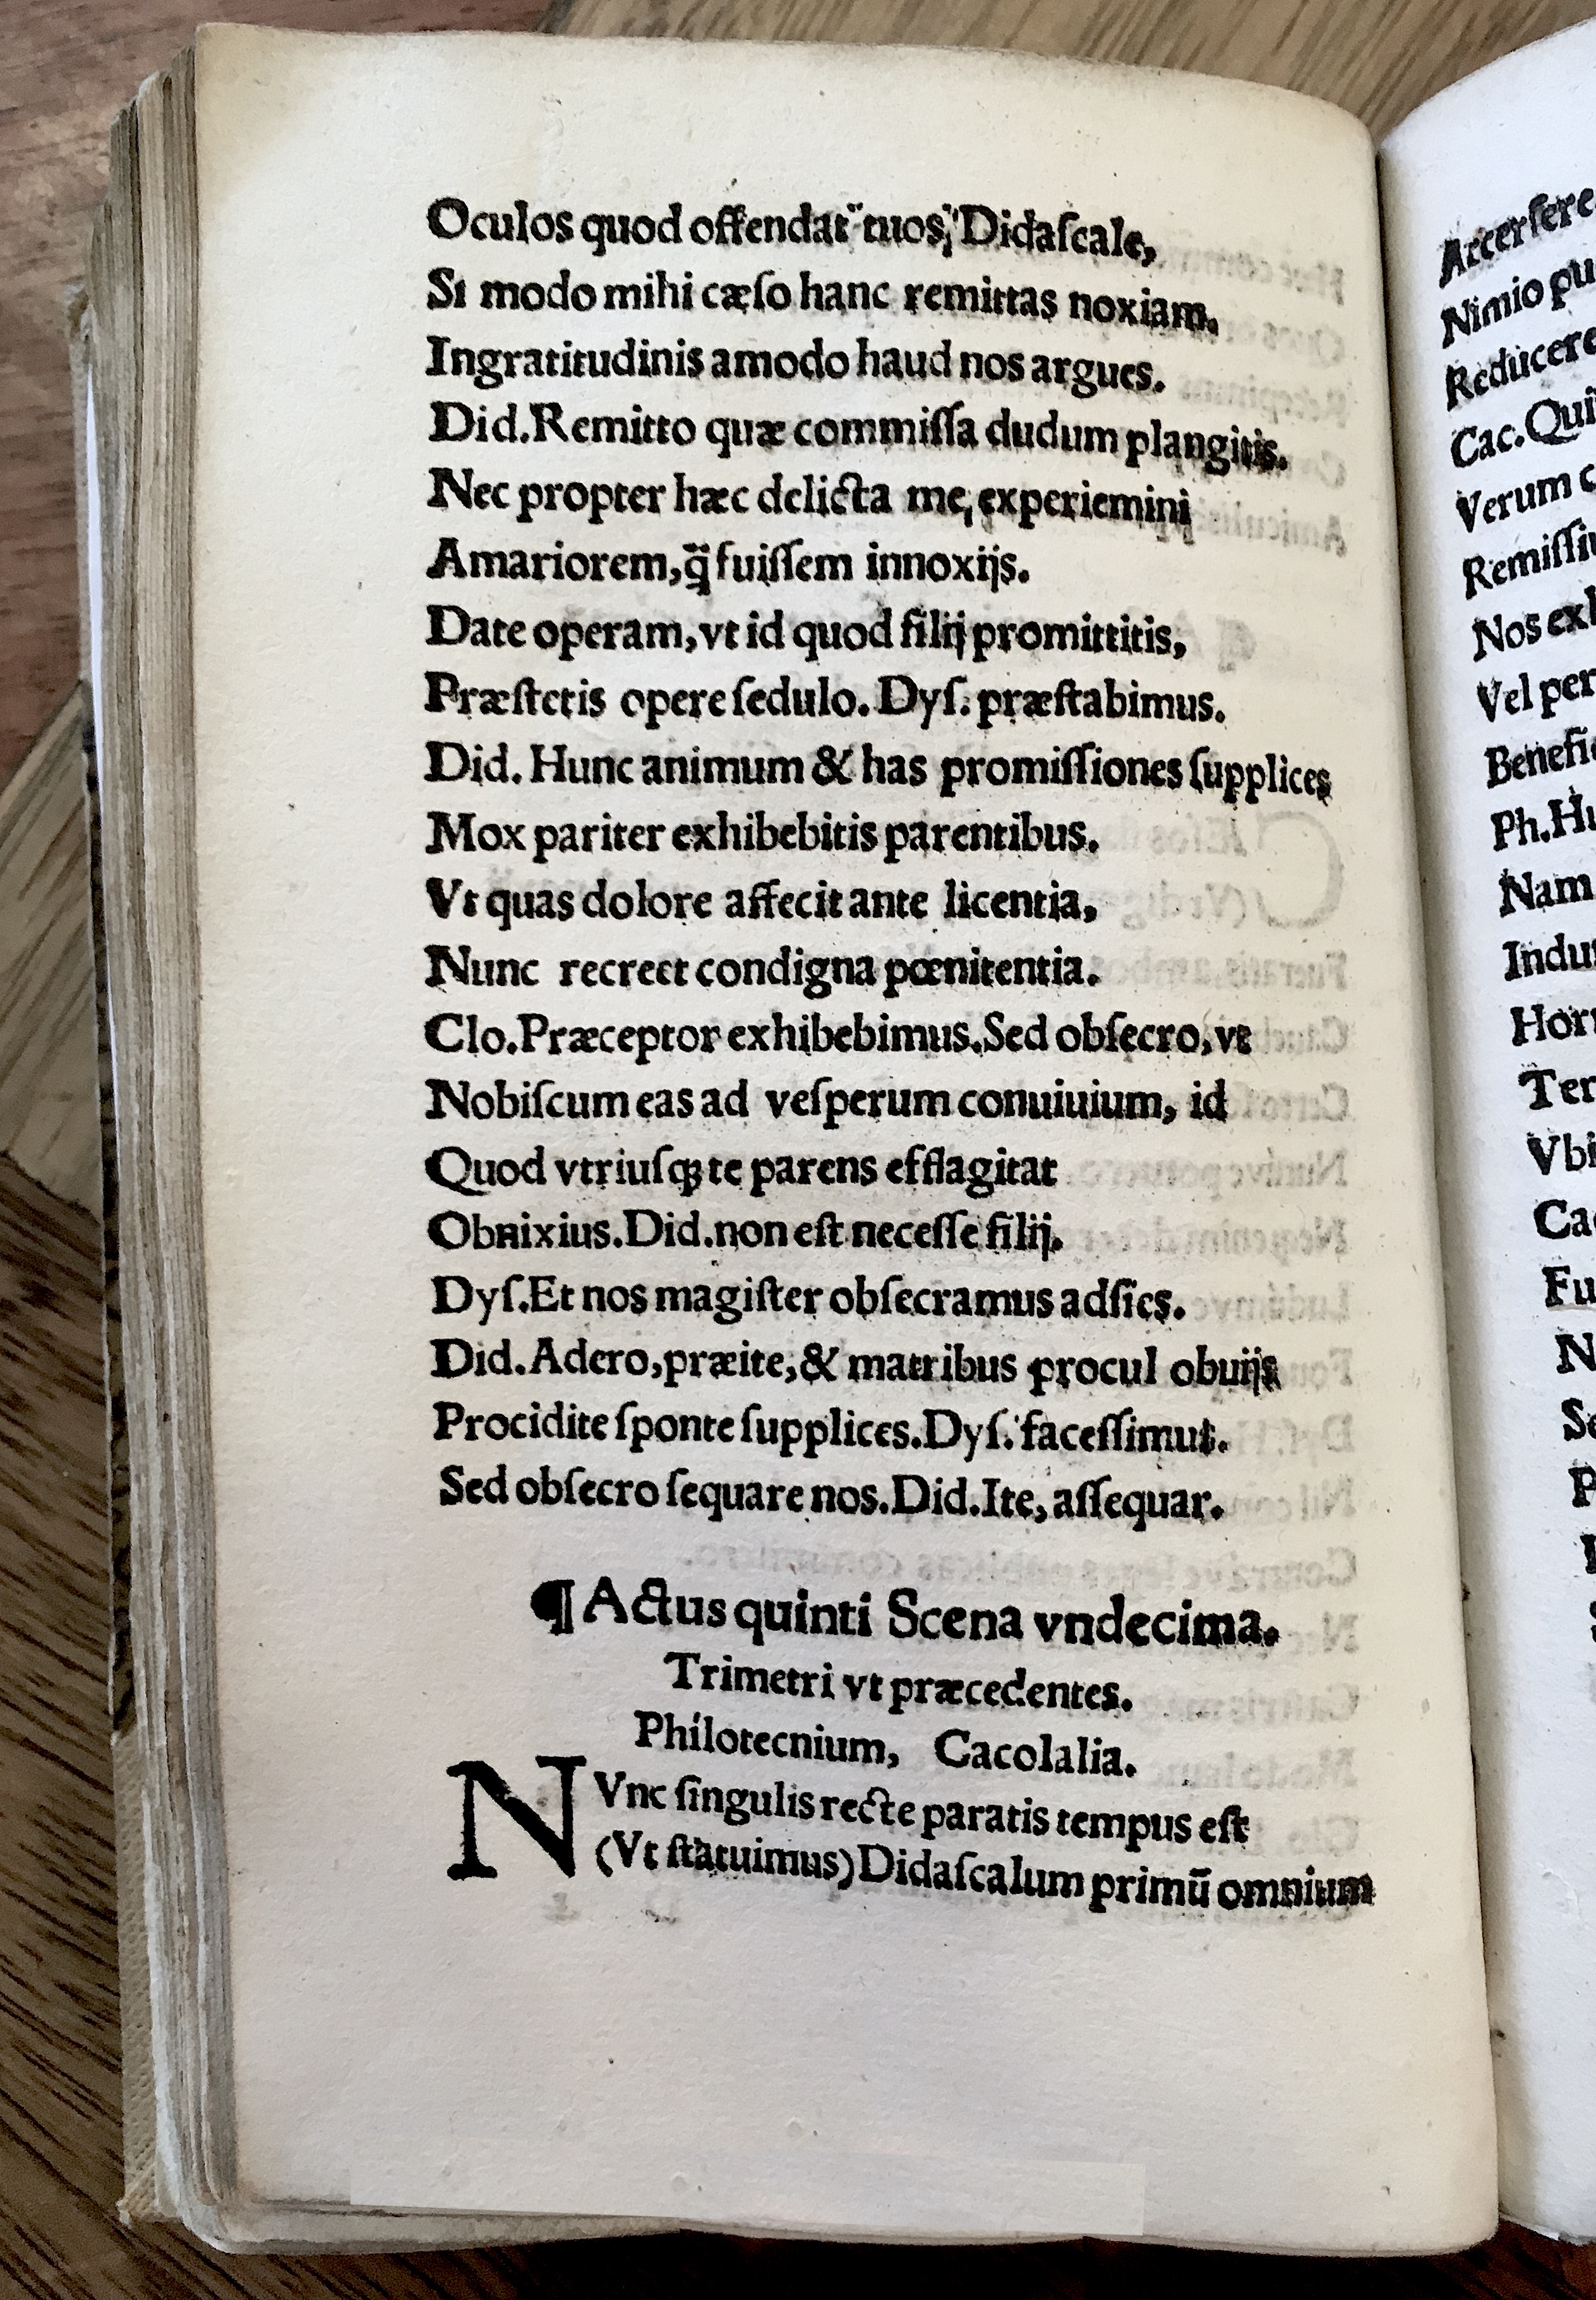 Oculos quod offendat tuos, Didaſcale,
Si modo mihi cæſo hanc remittas noxiam.
Ingratitudinis amodo haud nos argues.
Did. Remitto quæ commiſſa dudum plangitis.
Nec propter hæc delicta me, experiemini
Amariorem, q̈ fuiſſem innoxijs.
Date operam, vt id quod filij promittitis,
Præſtetis opere ſedulo. Dyſ. præſtabimus.
Did. Hunc animum & has promiſſiones ſupplices
Mox pariter exhibebitis parentibus.
Vt quas dolore affecit ante licentia,
Nunc recreet condigna pœnitentia.
Clo. Præceptor exhibebimus. Sed obſecro, vt
Nobiſcum eas ad veſperum conuiuium, id
Quod vtriuſqꝫ te parens efflagitat
Obnixius. Did. non eſt neceſſe filij.
Dyſ. Et nos magiſter obſecramus adſies.
Did. Adero, præite, & matribus procul obuijs
Procidite ſponte ſupplices. Dyſ. faceſſimus.
Sed obſecro ſequare nos. Did. Ite, aſſequar.
¶ Actus quinti Scena vndecima.
Trimetri vt præcedentes.
Philotecnium, Cacolalia.
NVnc ſingulis recte paratis tempus eſt
(Vt ſtatuimus) Didaſcalum primū omnium
Arcerſere
Nimio pu
Reducere
Cac. Qui
Verum c
Remiſſi
Nos exh
Vel per
Benefi
Ph. Hu
Nam
Indu
Hor
Ter
Vbi
Ca
Fu
N
Se
P